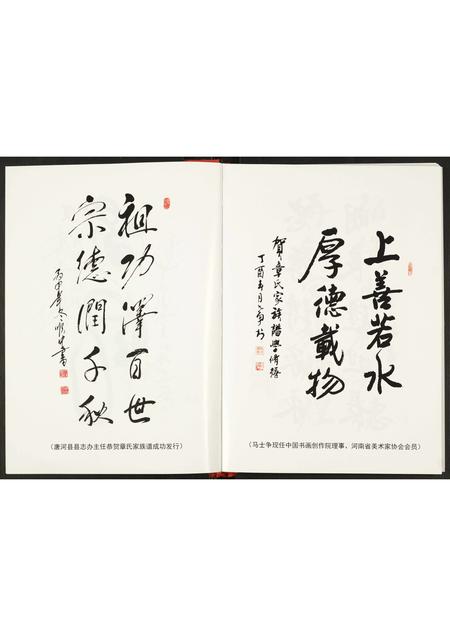 祖功泽百世
宗德润千秋
丙申年冬
书
（唐河县县志办主任恭贺章氏家族谱成功发行）
上善若水
厚德载物
贺章氏家族谱
丁酉年
（马士争现任中国书画创作院理事、河南省美术家协会会员）